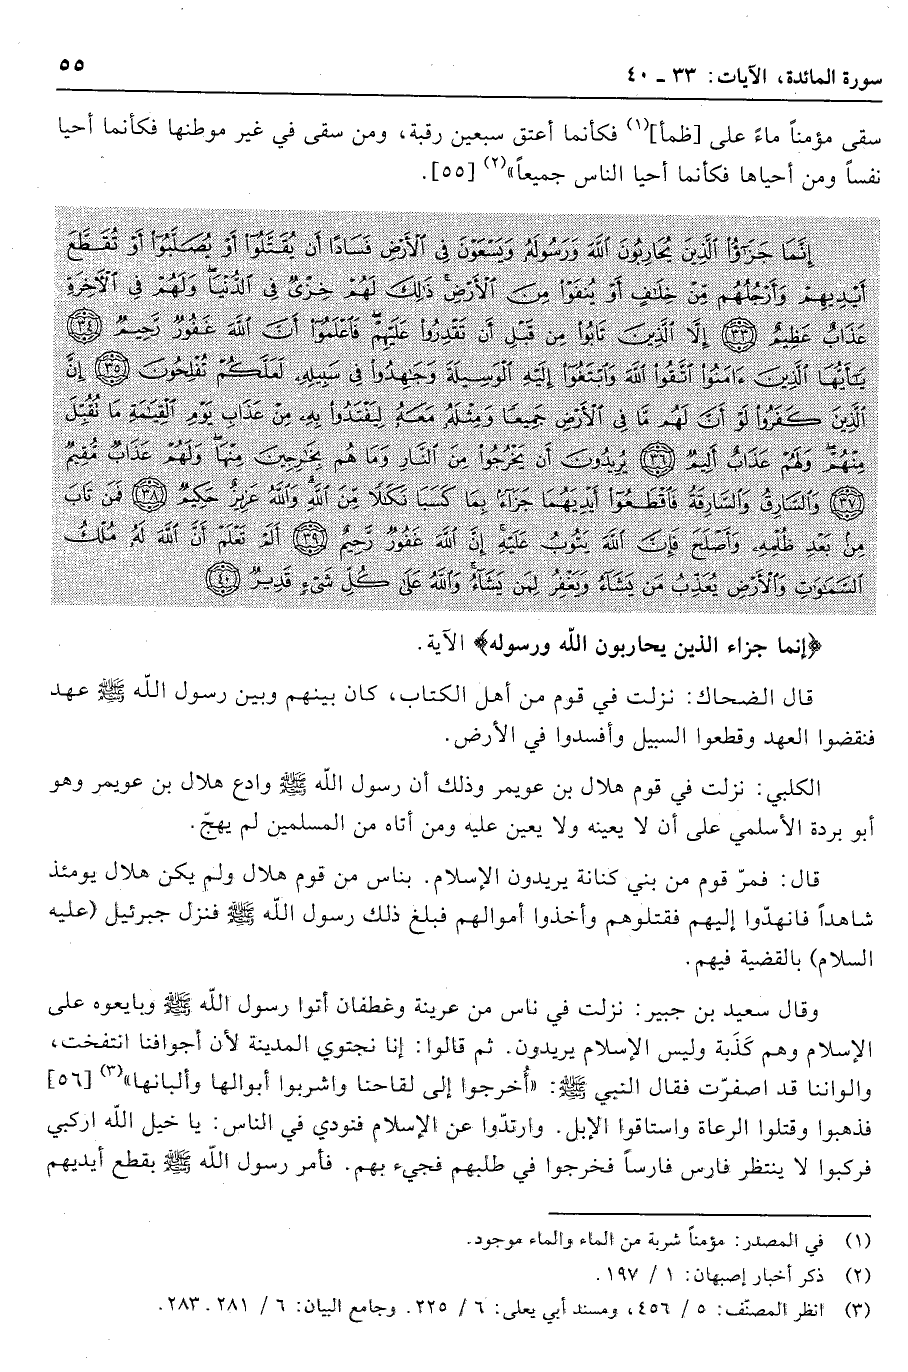 سورة المائدة، الآيات: ٣٣ ـ ٤٠ ٥٥
سقى مؤمناً ماءً على [ظمأ](١) فكأنما أعتق سبعين رقبة، ومن سقى في غير موطنها فكأنما أحيا
نفساً ومن أحياها فكأنما أحيا الناس جميعاً»(٢) [٥٥].
إِنَّمَا جَزَٰٓؤُا۟ ٱلَّذِينَ يُحَارِبُونَ ٱللَّهَ وَرَسُولَهُۥ وَيَسْعَوْنَ فِى ٱلْأَرْضِ فَسَادًا أَن يُقَتَّلُوٓا۟ أَوْ يُصَلَّبُوٓا۟ أَوْ تُقَطَّعَ
أَيْدِيهِمْ وَأَرْجُلُهُم مِّنْ خِلَٰفٍ أَوْ يُنفَوْا۟ مِنَ ٱلْأَرْضِ ۚ ذَٰلِكَ لَهُمْ خِزْىٌ فِى ٱلدُّنْيَا ۖ وَلَهُمْ فِى ٱلْءَاخِرَةِ
عَذَابٌ عَظِيمٌ ٣٣ إِلَّا ٱلَّذِينَ تَابُوا۟ مِن قَبْلِ أَن تَقْدِرُوا۟ عَلَيْهِمْ ۖ فَٱعْلَمُوٓا۟ أَنَّ ٱللَّهَ غَفُورٌ رَّحِيمٌ ٣٤
يَٰٓأَيُّهَا ٱلَّذِينَ ءَامَنُوا۟ ٱتَّقُوا۟ ٱللَّهَ وَٱبْتَغُوٓا۟ إِلَيْهِ ٱلْوَسِيلَةَ وَجَٰهِدُوا۟ فِى سَبِيلِهِۦ لَعَلَّكُمْ تُفْلِحُونَ ٣٥ إِنَّ
ٱلَّذِينَ كَفَرُوا۟ لَوْ أَنَّ لَهُم مَّا فِى ٱلْأَرْضِ جَمِيعًا وَمِثْلَهُۥ مَعَهُۥ لِيَفْتَدُوا۟ بِهِۦ مِنْ عَذَابِ يَوْمِ ٱلْقِيَٰمَةِ مَا تُقُبِّلَ
مِنْهُمْ ۖ وَلَهُمْ عَذَابٌ أَلِيمٌ ٣٦ يُرِيدُونَ أَن يَخْرُجُوا۟ مِنَ ٱلنَّارِ وَمَا هُم بِخَٰرِجِينَ مِنْهَا ۖ وَلَهُمْ عَذَابٌ مُّقِيمٌ
٣٧ وَٱلسَّارِقُ وَٱلسَّارِقَةُ فَٱقْطَعُوٓا۟ أَيْدِيَهُمَا جَزَآءًۢ بِمَا كَسَبَا نَكَٰلًا مِّنَ ٱللَّهِ ۗ وَٱللَّهُ عَزِيزٌ حَكِيمٌ ٣٨ فَمَن تَابَ
مِنۢ بَعْدِ ظُلْمِهِۦ وَأَصْلَحَ فَإِنَّ ٱللَّهَ يَتُوبُ عَلَيْهِ ۗ إِنَّ ٱللَّهَ غَفُورٌ رَّحِيمٌ ٣٩ أَلَمْ تَعْلَمْ أَنَّ ٱللَّهَ لَهُۥ مُلْكُ
ٱلسَّمَٰوَٰتِ وَٱلْأَرْضِ يُعَذِّبُ مَن يَشَآءُ وَيَغْفِرُ لِمَن يَشَآءُ ۗ وَٱللَّهُ عَلَىٰ كُلِّ شَىْءٍ قَدِيرٌ ٤٠
﴿إنما جزاء الذين يحاربون اللّه ورسوله﴾ الآية.
قال الضحاك: نزلت في قوم من أهل الكتاب، كان بينهم وبين رسول اللّه ﷺ عهد
فنقضوا العهد وقطعوا السبيل وأفسدوا في الأرض.
الكلبي: نزلت في قوم هلال بن عويمر وذلك أن رسول اللّه ﷺ وادع هلال بن عويمر وهو
أبو بردة الأسلمي على أن لا يعينه ولا يعين عليه ومن أتاه من المسلمين لم يهجّ.
قال: فمرّ قوم من بني كنانة يريدون الإسلام. بناس من قوم هلال ولم يكن هلال يومئذ
شاهداً فانهدّوا إليهم فقتلوهم وأخذوا أموالهم فبلغ ذلك رسول اللّه ﷺ فنزل جبرئيل (عليه
السلام) بالقضية فيهم.
وقال سعيد بن جبير: نزلت في ناس من عرينة وغطفان أتوا رسول اللّه ﷺ وبايعوه على
الإسلام وهم كَذَبة وليس الإسلام يريدون. ثم قالوا: إنا نجتوي المدينة لأن أجوافنا انتفخت،
والواننا قد اصفرّت فقال النبي ﷺ: «أُخرجوا إلى لقاحنا واشربوا أبوالها وألبانها»(٣) [٥٦]
فذهبوا وقتلوا الرعاة واستاقوا الإبل. وارتدّوا عن الإسلام فنودي في الناس: يا خيل اللّه اركبي
فركبوا لا ينتظر فارس فارساً فخرجوا في طلبهم فجيء بهم. فأمر رسول اللّه ﷺ بقطع أيديهم
(١) في المصدر: مؤمناً شربة من الماء والماء موجود.
(٢) ذكر أخبار إصبهان: ١ / ١٩٧.
(٣) انظر المصنّف: ٥ / ٤٥٦، ومسند أبي يعلى: ٦ / ٢٢٥. وجامع البيان: ٦ / ٢٨١ ـ ٢٨٣.